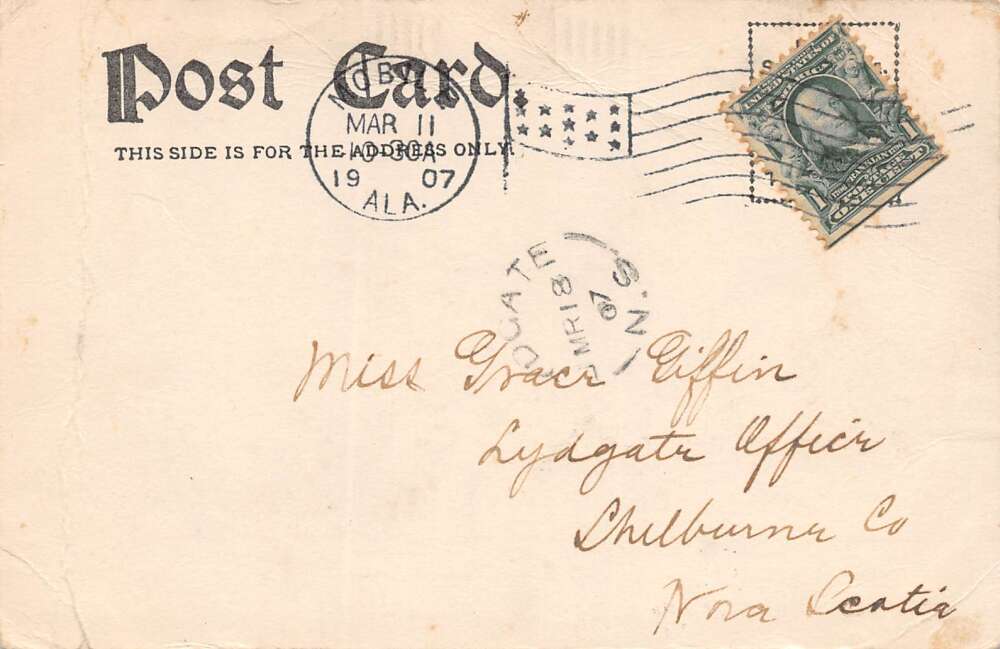 Post Card
THIS SIDE IS FOR THE ADDRESS ONLY.
MOBILE
MAR 11
10-30A
19 07
ALA.
UNITED STATES OF AMERICA
1706 FRANKLIN 1790
POSTAGE
ONE CENT
1 1
DGATE
MR 18
07
N.S.
Miss Grace Giffin
Lydgate Office
Shelburne Co
Nova Scotia